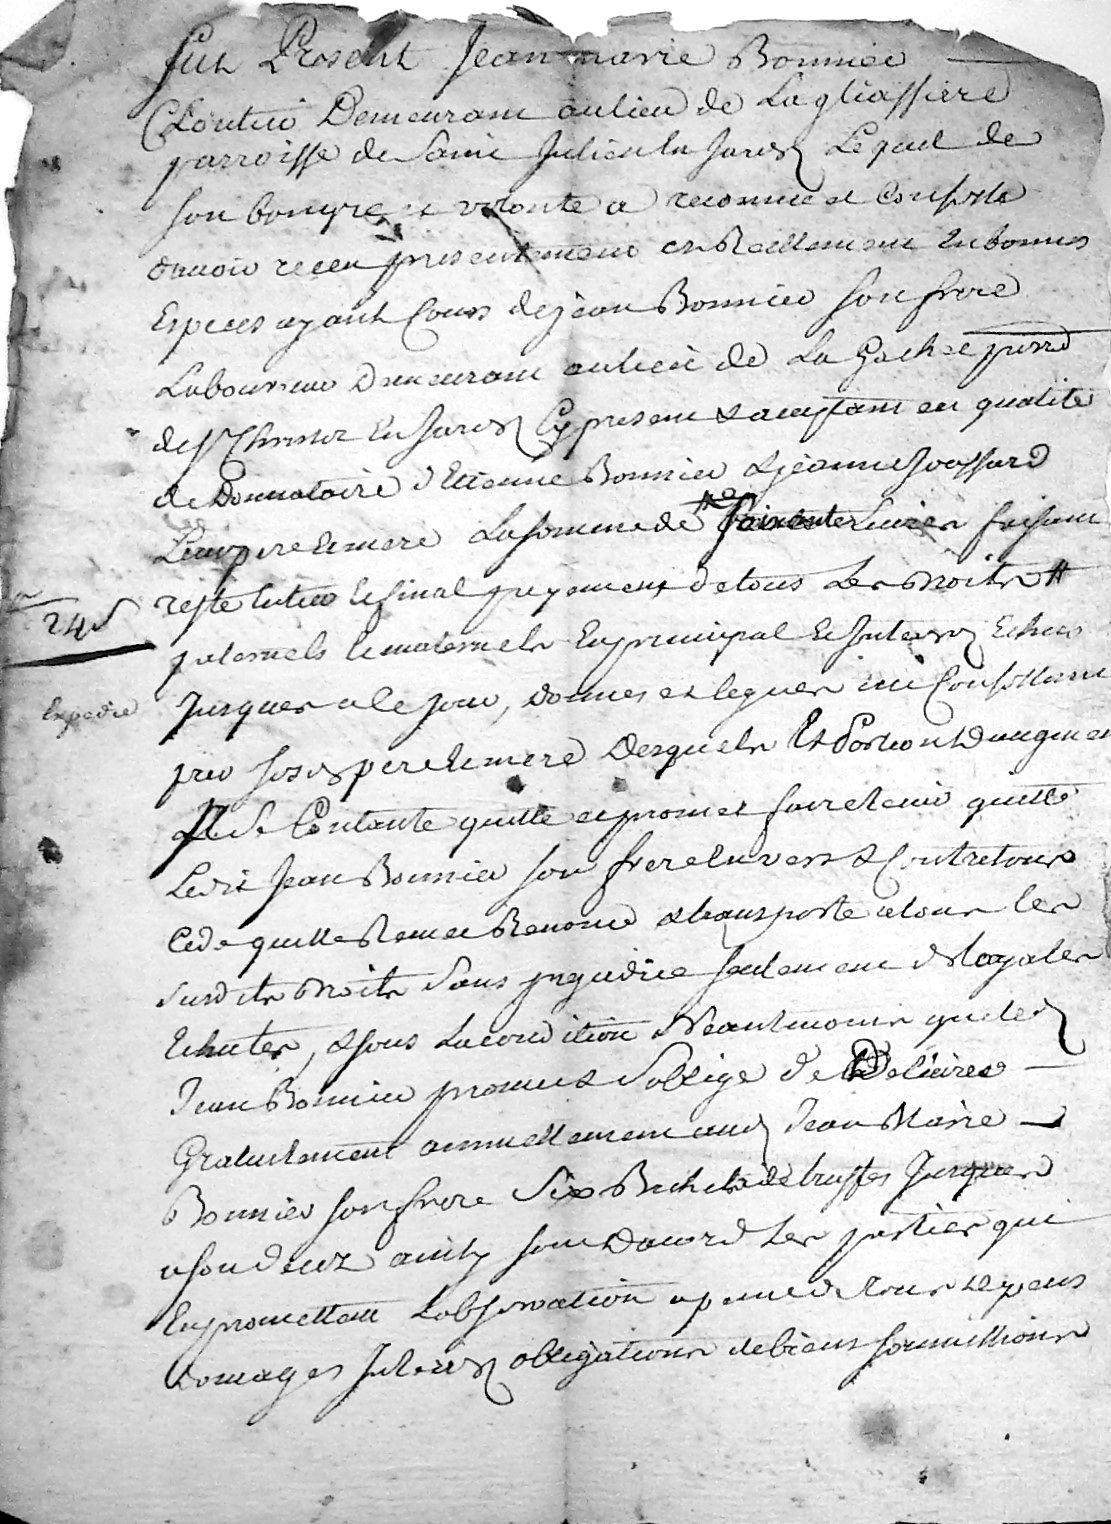 fut Present Jean marie Bonnier
Cloutier Demeurant au lieu de La gliassiere
parroisse de Saint Julien en Jarez Lequel de
son bon gre et volonte a reconnu et Confesse
d'avoir receu presentement et Reellement en bonnes
Especes ayant Cours de jean Bonnier son frere
Laboureur Demeurant au lieu de La Gachee parr
de St Christot En Jarez Cy present & acceptant en qualité
de Donnataire d'Etienne Bonnier & jeanne
Leurs pere et mere La somme de Soixante Livres faisant
reste entier le final payement de tous Les Droits
24 s
paternels et maternels En principal et Interez Echus
Expedie
Jusques a Ce Jour, donnes et legues
par ses pere et mere Desquels Et Portion D'augment
Il se Contante quitte et promet faire tenir quitte
Ledit Jean Bonnier son frere envers & Contre tous
Cede quitte Remet Renonce & transporte a tous les
susdits Droits Sans prejudice seulement de Loyales
Echutes, & sous La condition Neantmoins que led
Jean Bonnier promet & S'oblige de Delivrer
Gratuitement annuellement aud Jean Marie
Bonnier son frere Six Bichets de truffes Jusques
a son decez ainsy sont D'acord Les parties qui
En promettent L'observation a peine de tous depens
Domages Interez obligations de biens soumissions